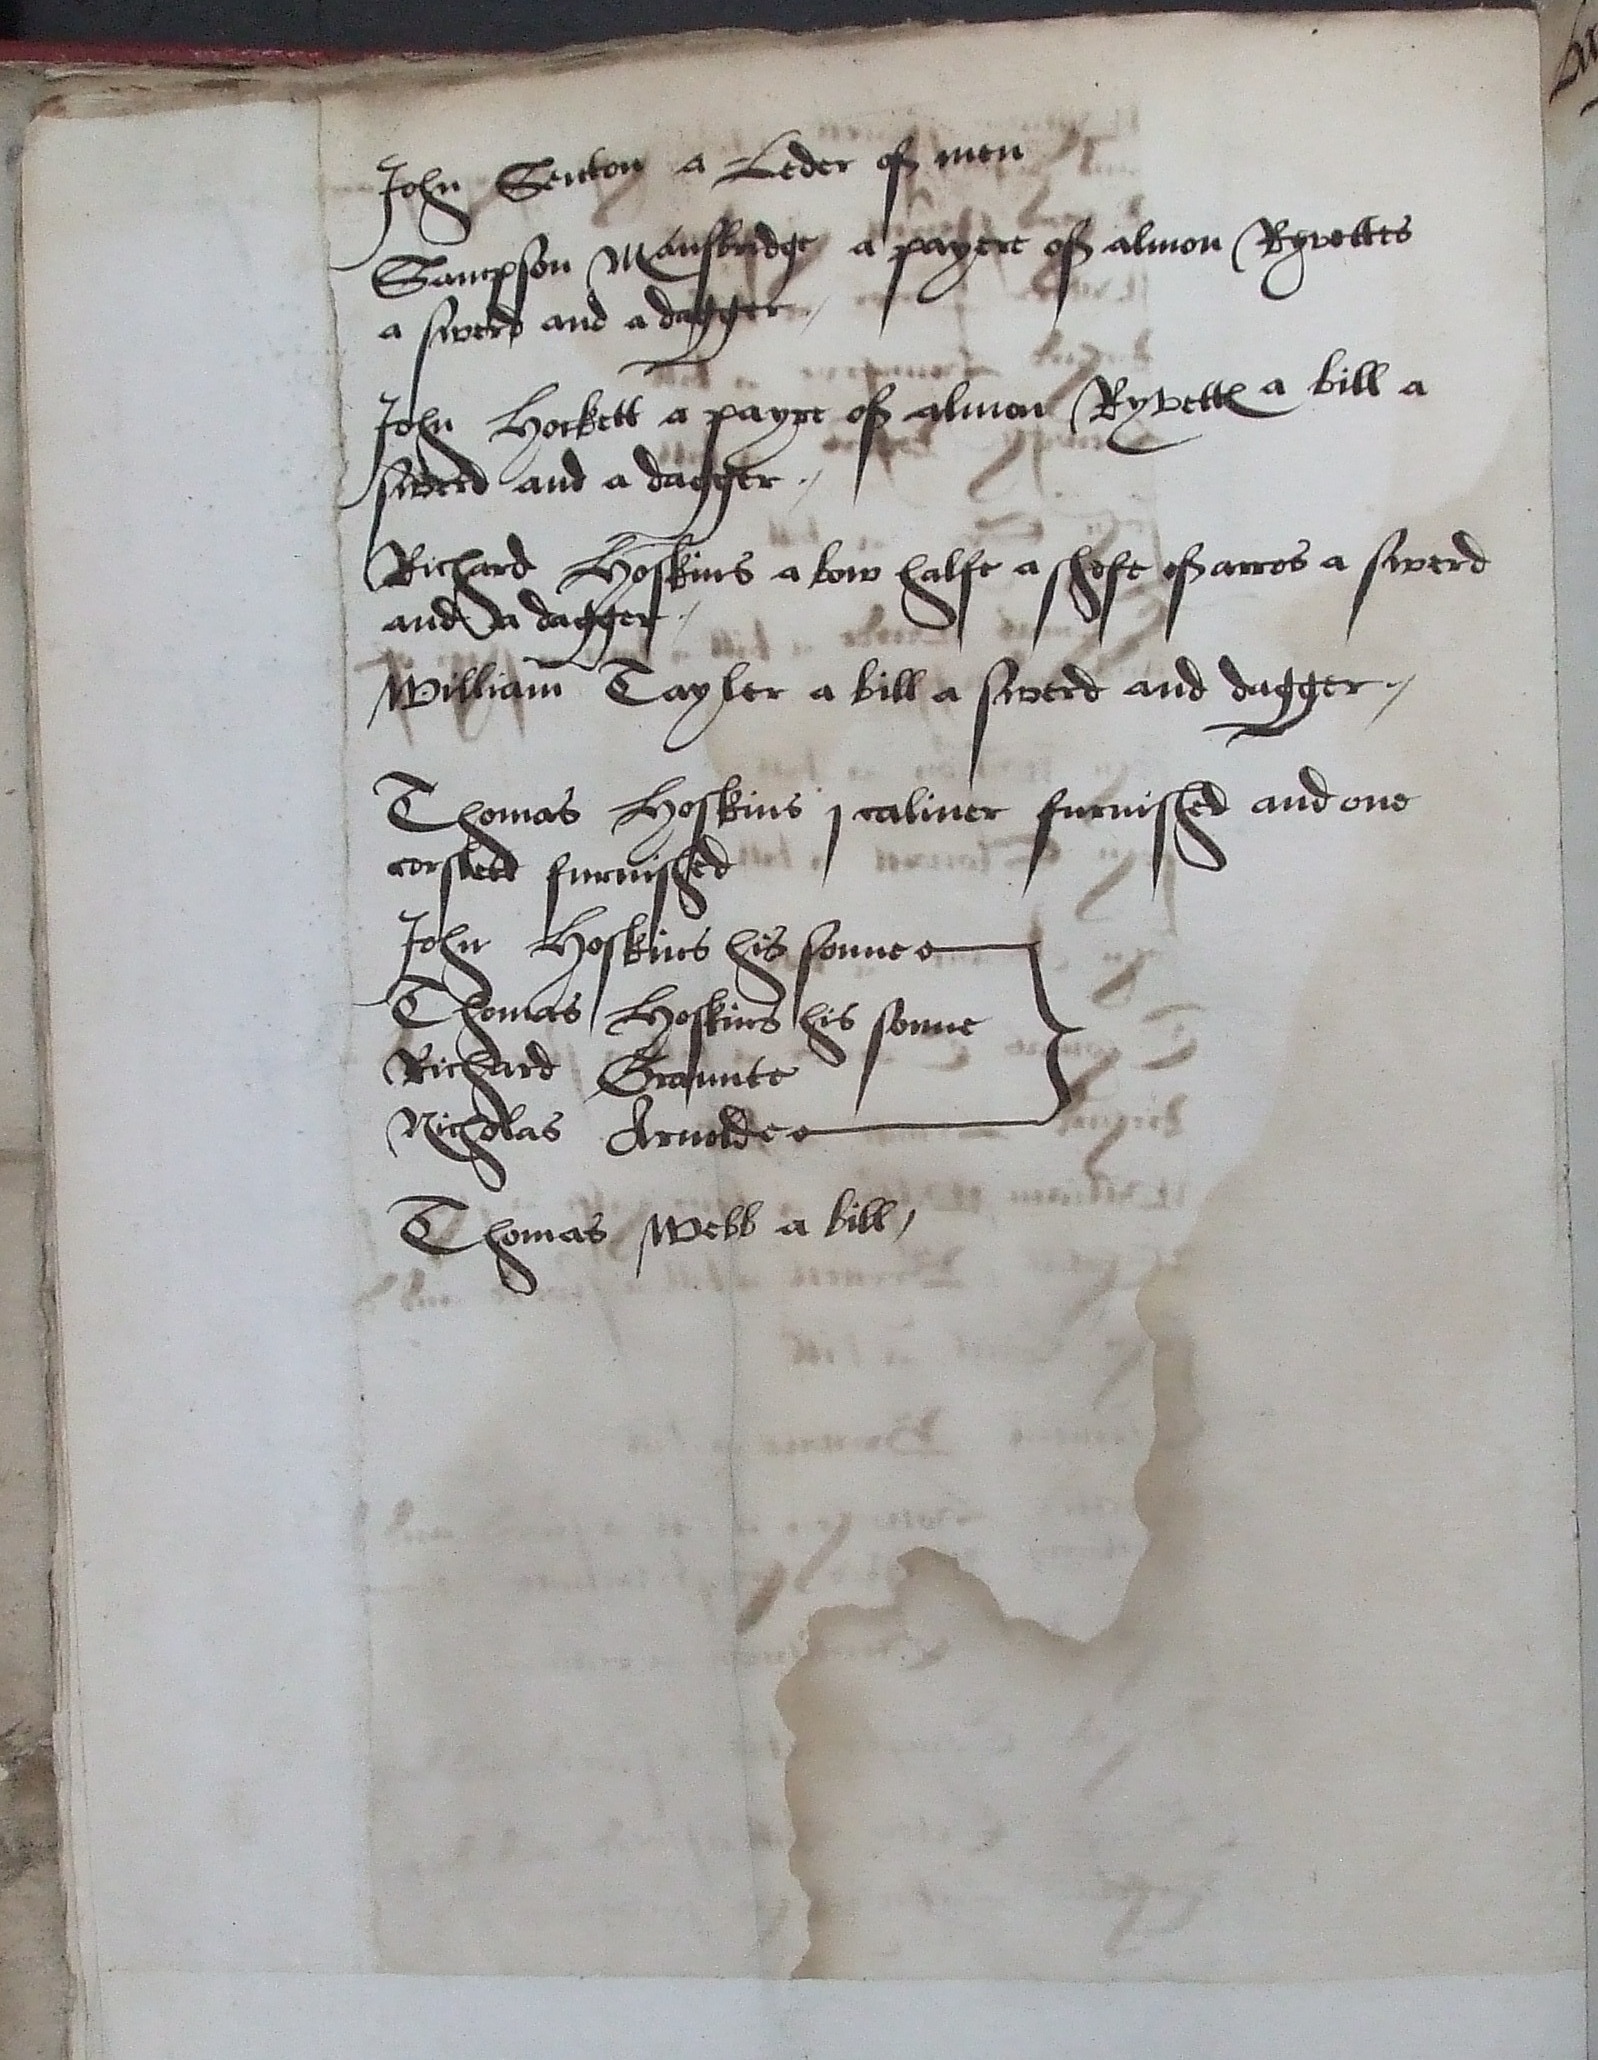 John Senton a Leder of men
Sampson Mansbridge a payere of almon Ryvettes
a swerd and a dagger
John Hockett a payre of almon Ryvettes a bill a
swerd and a dagger
Richard Hoskins a bow halfe a shefe of arros a swerd
and a dagger
William Tayler a bill a swerd and dagger
Thomas Hoskins j caliver furnished and one
corslett furnished
John Hoskins his sonne
Thomas Hoskins his sonne
Richard Graunte
Nicholas Arnolde
Thomas Webb a bill